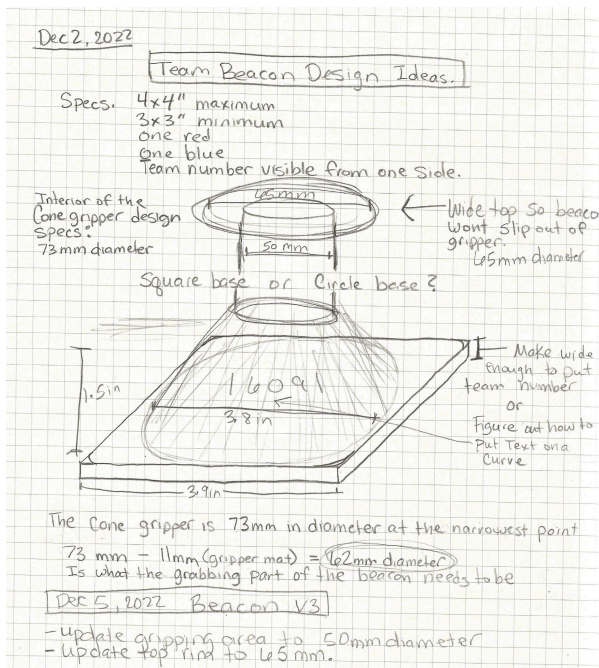 Dec 2, 2022
Team Beacon Design Ideas.
Specs. 4x4" maximum
3x3" minimum
one red
one blue
Team number visible from one side.
65mm
Interior of the
Cone gripper design
specs:
73mm diameter
Wide top so beaco
wont slip out of
gripper.
65mm diameter
50 mm
Square base or Circle base?
1.5in
16091
3.8in
Make wide
enough to put
team number
or
Figure out how to
Put Text on a
Curve
3.9in
The Cone gripper is 73mm in diameter at the narrowest point
73 mm - 11mm (gripper mat) = 62mm diameter
Is what the grabbing part of the beacon needs to be
Dec 5, 2022 Beacon V3
- update gripping area to 50mm diameter
- update top rind to 65mm.